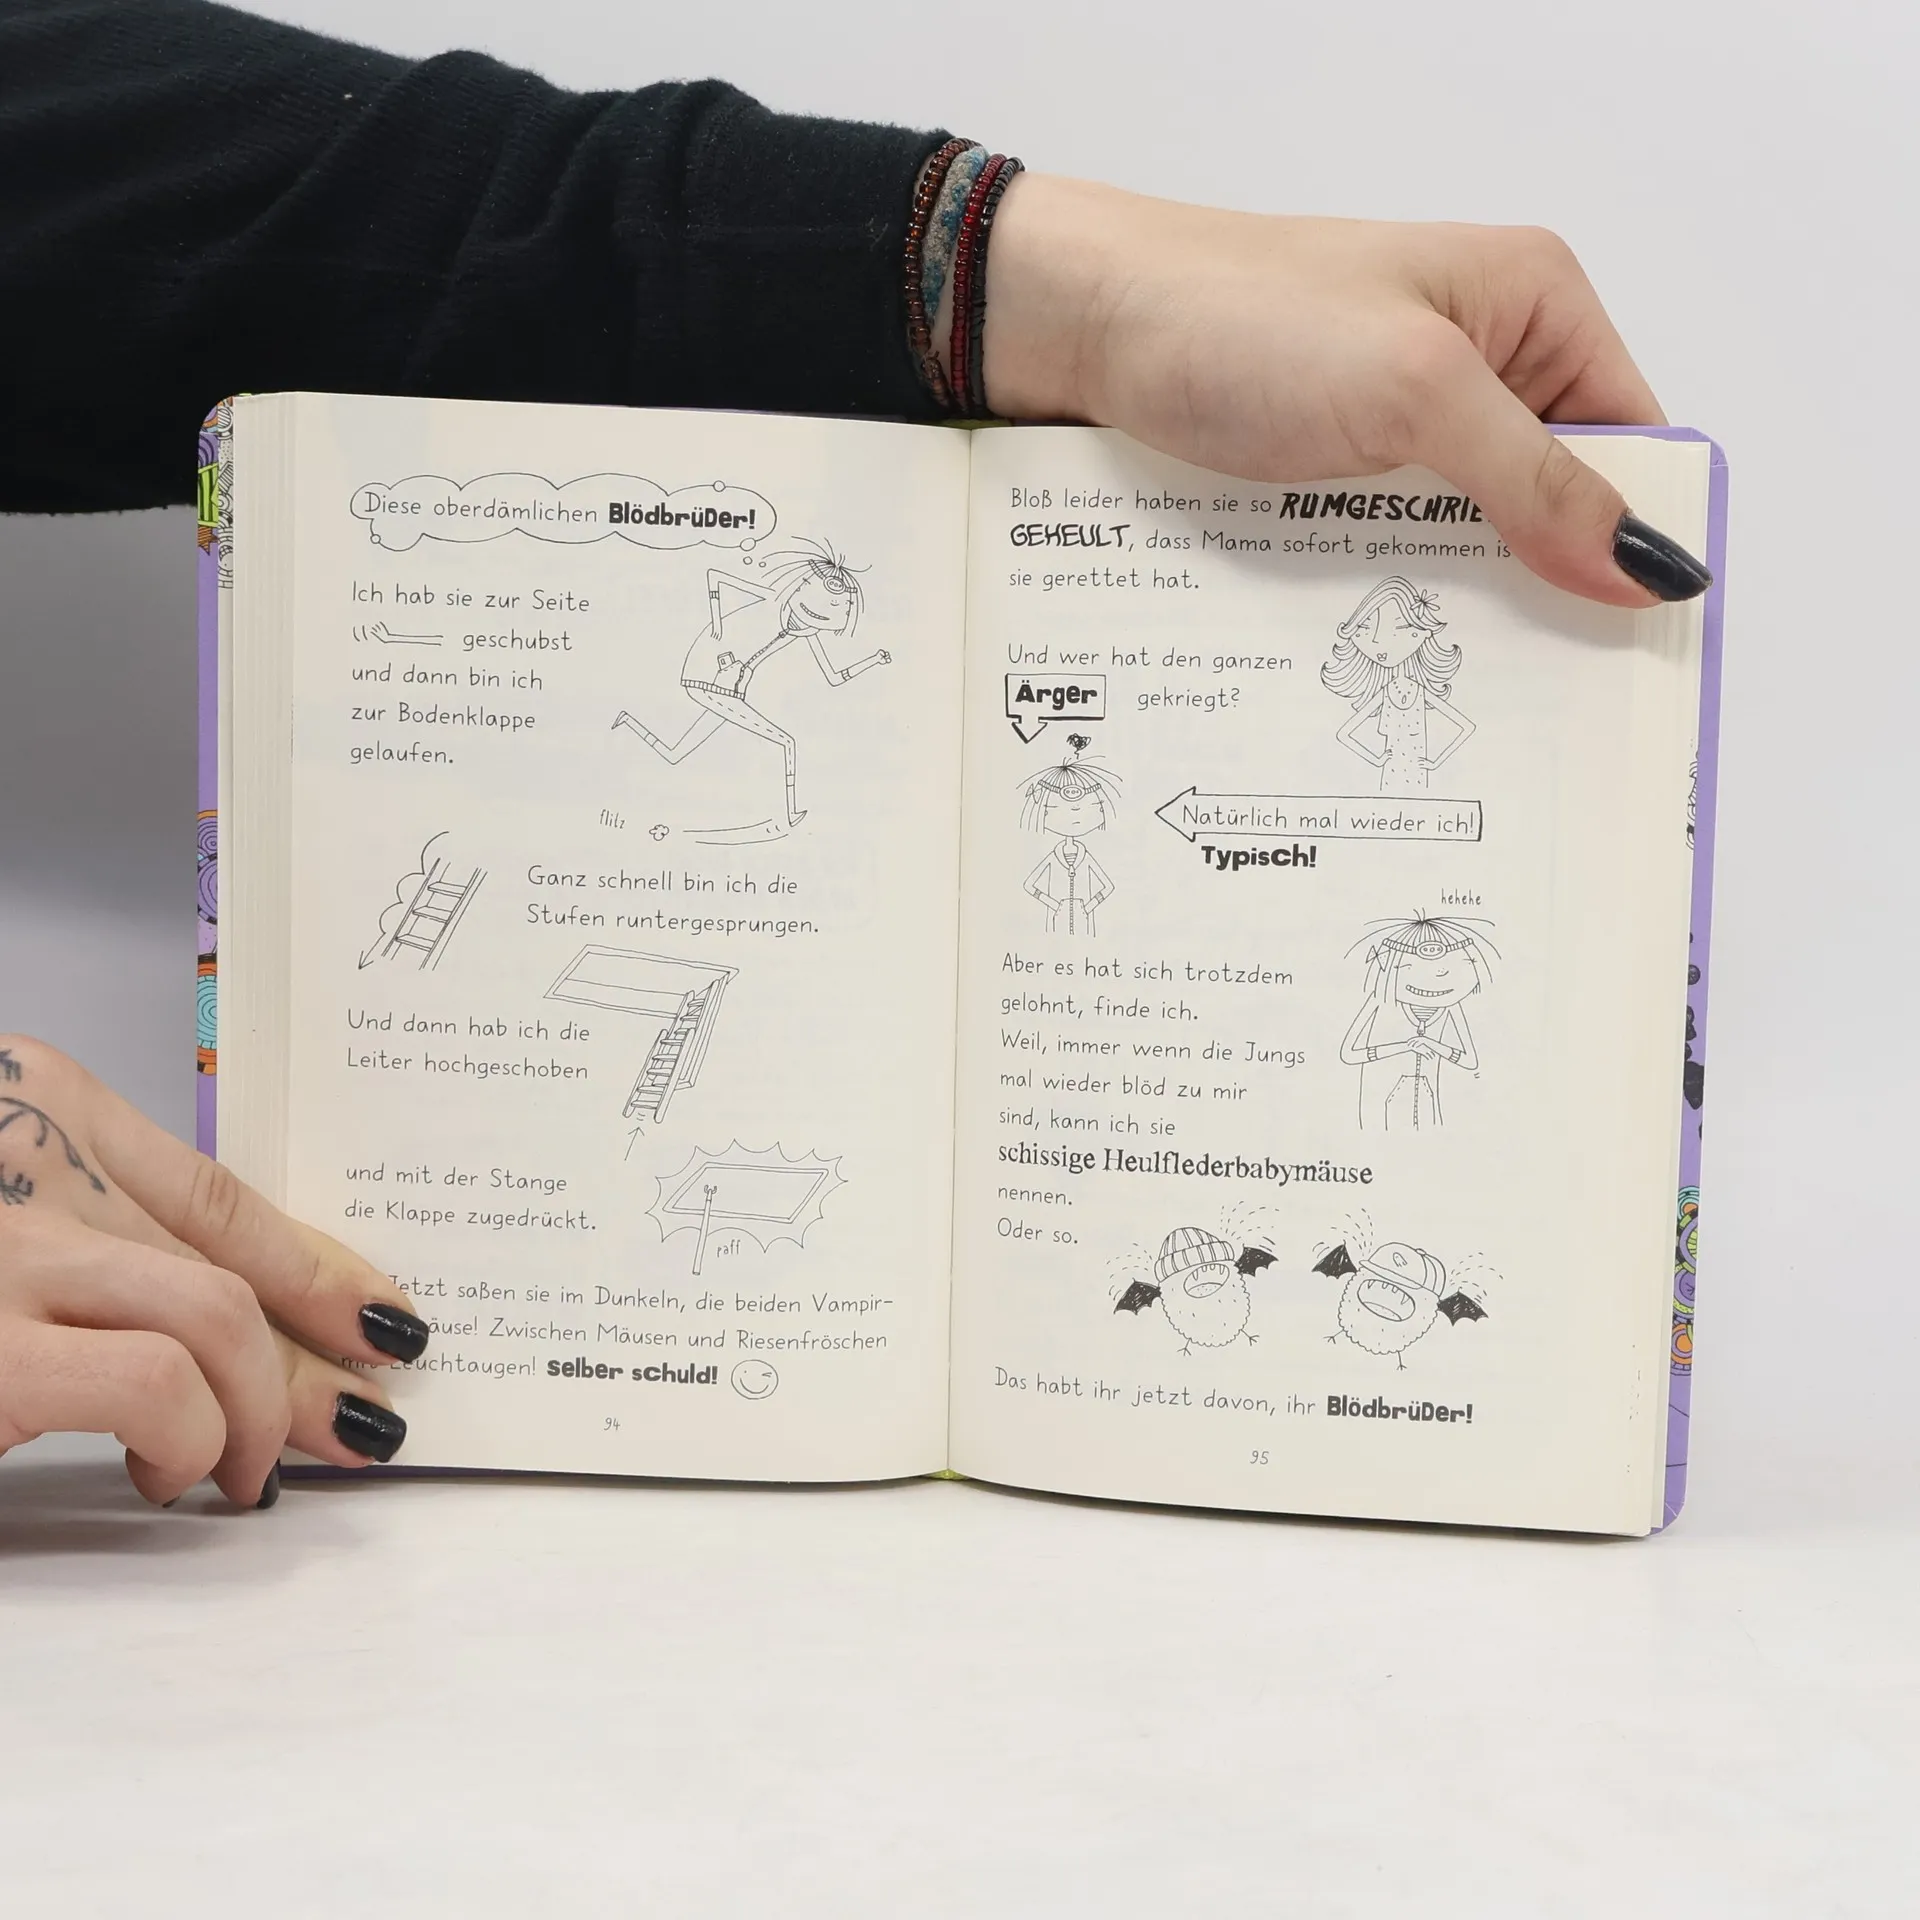 Diese oberdämlichen Blödbrüder!
Ich hab sie zur Seite
geschubst
und dann bin ich
zur Bodenklappe
gelaufen.
flitz
Ganz schnell bin ich die
Stufen runtergesprungen.
Und dann hab ich die
Leiter hochgeschoben
und mit der Stange
die Klappe zugedrückt.
paff
Jetzt saßen sie im Dunkeln, die beiden Vampir-
äuse! Zwischen Mäusen und Riesenfröschen
Leuchtaugen! Selber schuld!
94
Bloß leider haben sie so RUMGESCHRIE
GEHEULT, dass Mama sofort gekommen is
sie gerettet hat.
Und wer hat den ganzen
Ärger gekriegt?
Natürlich mal wieder ich!
Typisch!
hehehe
Aber es hat sich trotzdem
gelohnt, finde ich.
Weil, immer wenn die Jungs
mal wieder blöd zu mir
sind, kann ich sie
schissige Heulflederbabymäuse
nennen.
Oder so.
Das habt ihr jetzt davon, ihr Blödbrüder!
95